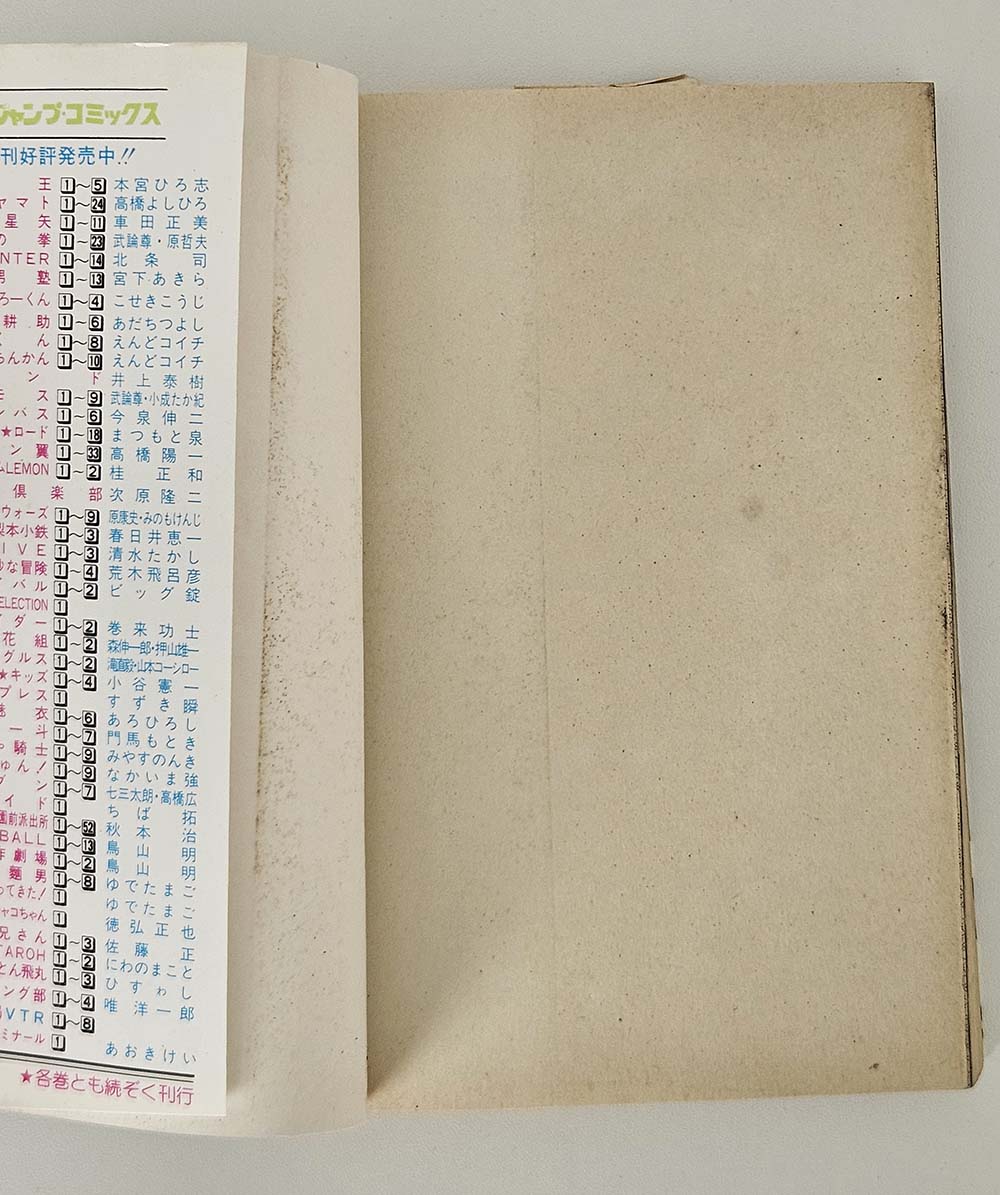 ジャンプ・コミックス
刊好評発売中!!
王 1~5 本宮ひろ志
ヤマト 1~24 高橋よしひろ
星矢 1~11 車田正美
の拳 1~23 武論尊・原哲夫
NTER 1~14 北条司
男塾 1~13 宮下あきら
ろーくん 1~4 こせきこうじ
耕助 1~6 あだちつよし
くん 1~8 えんどコイチ
らんかん 1~10 えんどコイチ
ンド 井上泰樹
モス 1~9 武論尊・小成たか紀
ンバス 1~6 今泉伸二
★ロード 1~18 まつもと泉
ン翼 1~33 高橋陽一
ムLEMON 1~2 桂正和
倶楽部 次原隆二
ウォーズ 1~9 原康史・みのもけんじ
梨本小鉄 1~3 春日井恵一
IVE 1~3 清水たかし
妙な冒険 1~4 荒木飛呂彦
バル 1~2 ビッグ錠
ELECTION 1
イダー 1~2 巻来功士
花組 1~2 森伸一郎・押山雄一
グルス 1~2 滝直毅・山本コーシロー
★キッズ 1~4 小谷憲一
プレス 1 すずき瞬
魅衣 1~6 あろひろし
一斗 1~7 門馬もとき
騎士 1~9 みやすのんき
ゅん! 1~9 なかいま強
ン 1~7 七三太朗・高橋広
イド 1 ちば拓
園前派出所 1~52 秋本治
BALL 1~13 鳥山明
劇場 1~2 鳥山明
麺男 1~8 ゆでたまご
ってきた! 1 ゆでたまご
ャコちゃん 1 徳弘正也
兄さん 1~3 佐藤正
TAROH 1~2 にわのまこと
とん飛丸 1~3 ひすゎし
ング部 1~4 唯洋一郎
VTR 1~8
ミナール 1 あおきけい
★各巻とも続ぞく刊行